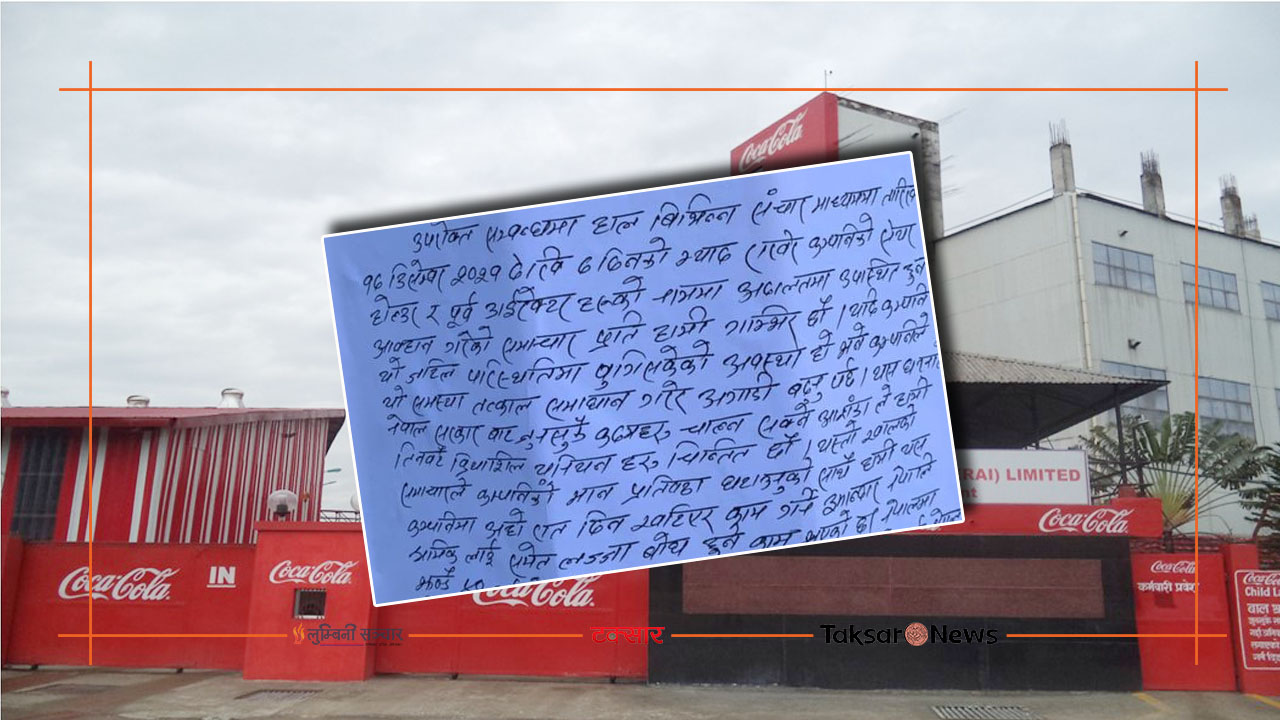 Coca-Cola
उपरोक्त सम्बन्धमा हाल बिभिन्न संचार माध्यममा तारिख
१७ डिसेम्बर २०२१ देखि ७ दिनको म्याद राखेर कम्पनिको सेयर
होल्डर र पूर्व डाईरेक्टर हरुको नाममा अदालतमा उपस्थित हुन
आव्हान गरेको समाचार प्रति हामी गम्भिर छौं । यदि कम्पनि
यो जटिल परिस्थितिमा पुगिसकेको अवस्था हो भने कम्पनिले
यो समस्या तत्काल समाधान गरेर अगाडी बढ्नु पर्छ । यस
नेपाल सरकार बाट कदमहरु चाल्न सक्ने आशंका ले हामी
तिनवटै क्रियाशिल युनियन हरु चिन्तित छौं । यस्तो खालको
समाचारले कम्पनिको मान प्रतिष्ठा घटाउनुको साथै हामी यस
कम्पनिमा अहो रात दिन खटिएर काम गर्ने नेपाली
श्रमिक लाई समेत लज्जा बोध हुने काम भएको छ । नेपालमा
RAI) LIMITED
Coca-Cola
Coca-Cola
IN
Coca-Cola
Coca-Cola
Coca-Cola
कर्मचारी प्रवेश
Coca-Cola
Child L
बाल
लुम्बिनी सञ्चार
टक्सार
Taksar News